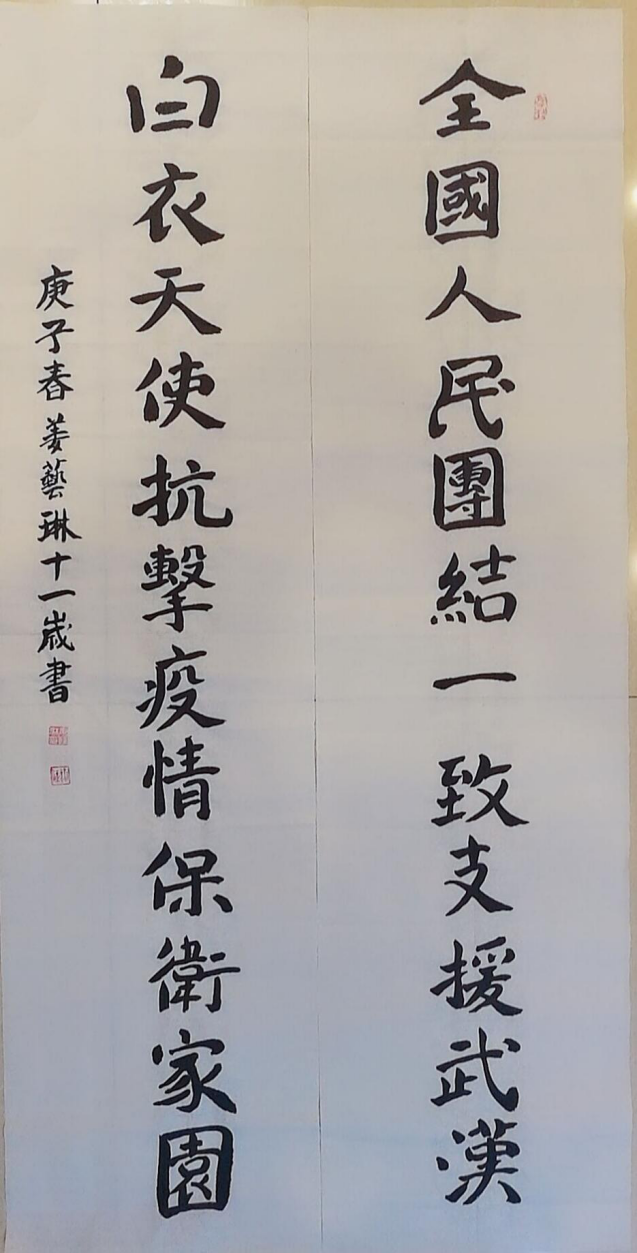 全國人民團結一致支援武漢
白衣天使抗擊疫情保衛家園
庚子春姜藝琳十一歲書